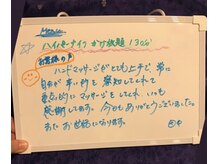 Menu
ハイパーナイフ かけ放題 130分
お客様の声
ハンドマッサージがとても上手で 常に
自分が辛い所を察知してくれて
重点的にマッサージをしてくれ、いつも
感謝してます。今日もありがとうございました。
また お世話になります。